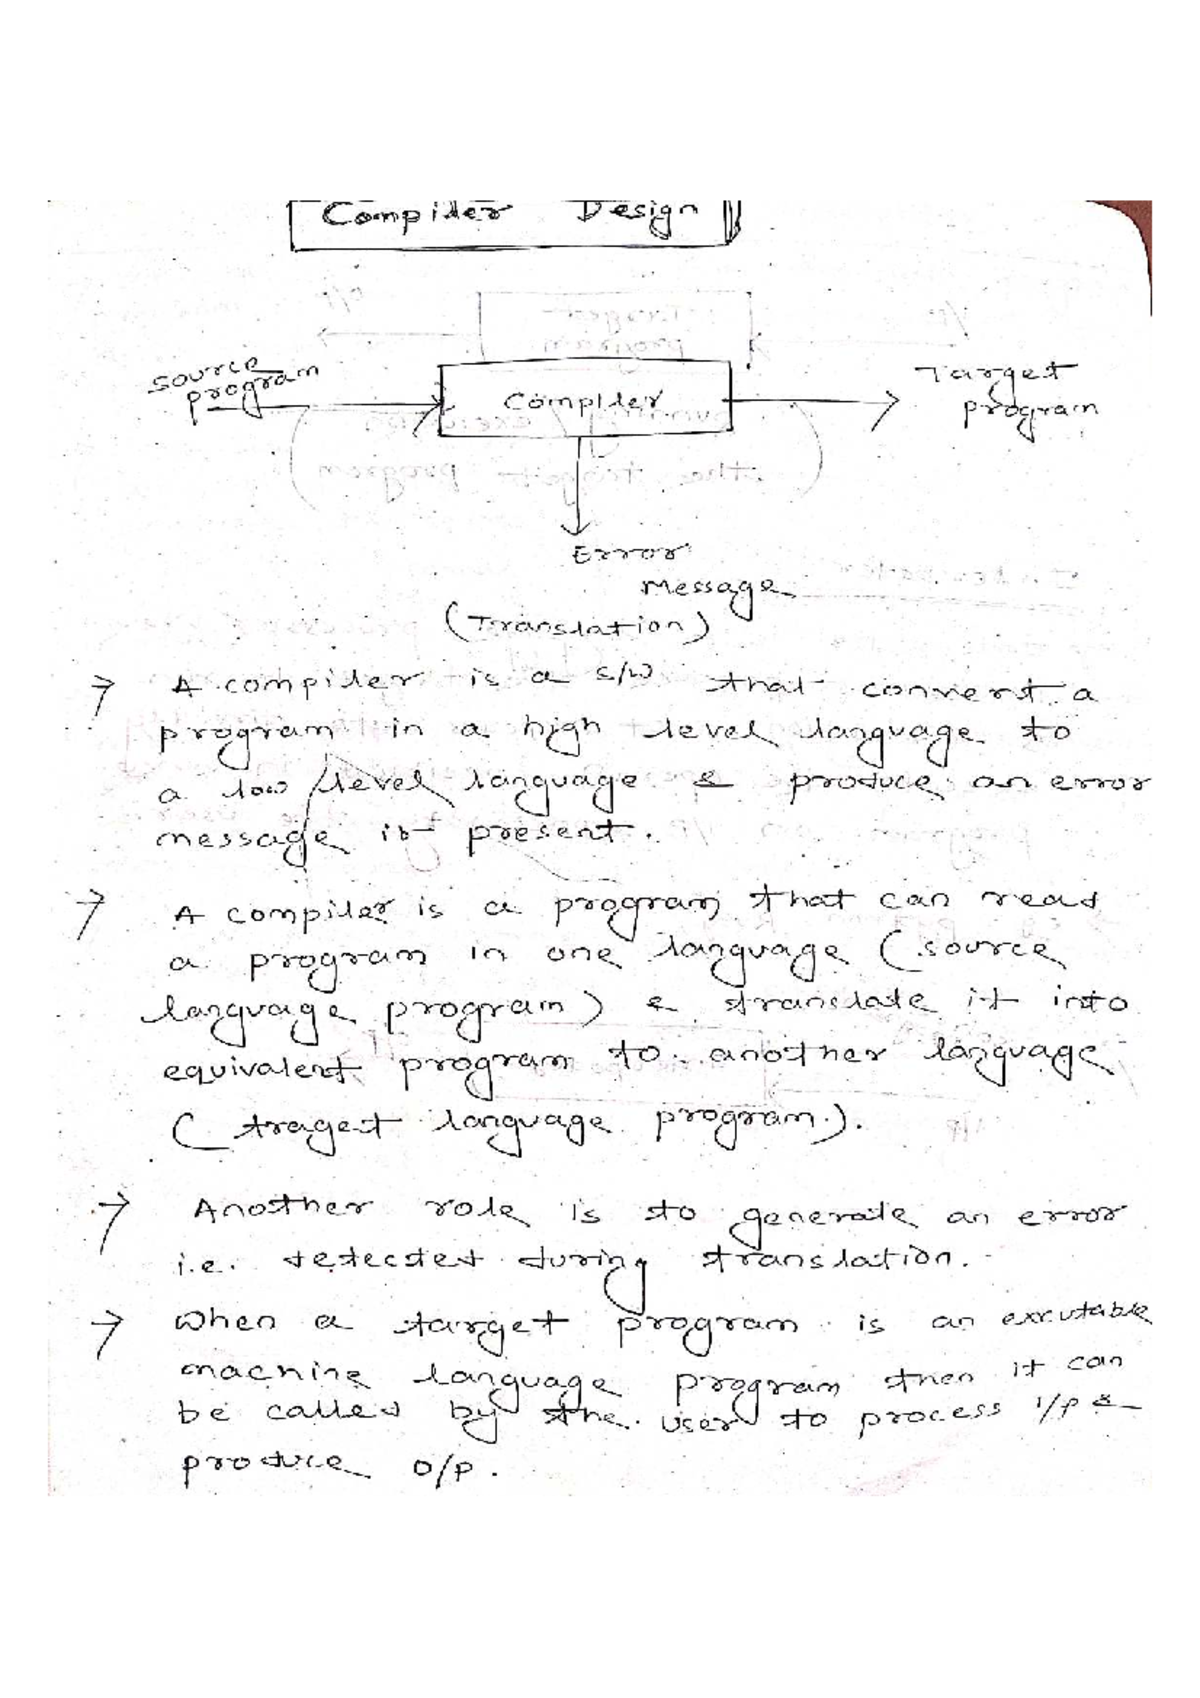 Compiler Design
Source
program
Compiler
Target
program
Error
Message
(Translation)
→ A compiler is a s/w that convert a
program in a high level language to
a low level language & produce an error
message if present.
→ A compiler is a program that can read
a program in one language (source
language program) & translate it into
equivalent program to another language
(traget language program).
→ Another role is to generate an error
i.e. detected during translation.
→ When a target program is an excutable
machine language program then it can
be called by the user to process i/p &
produce o/p.